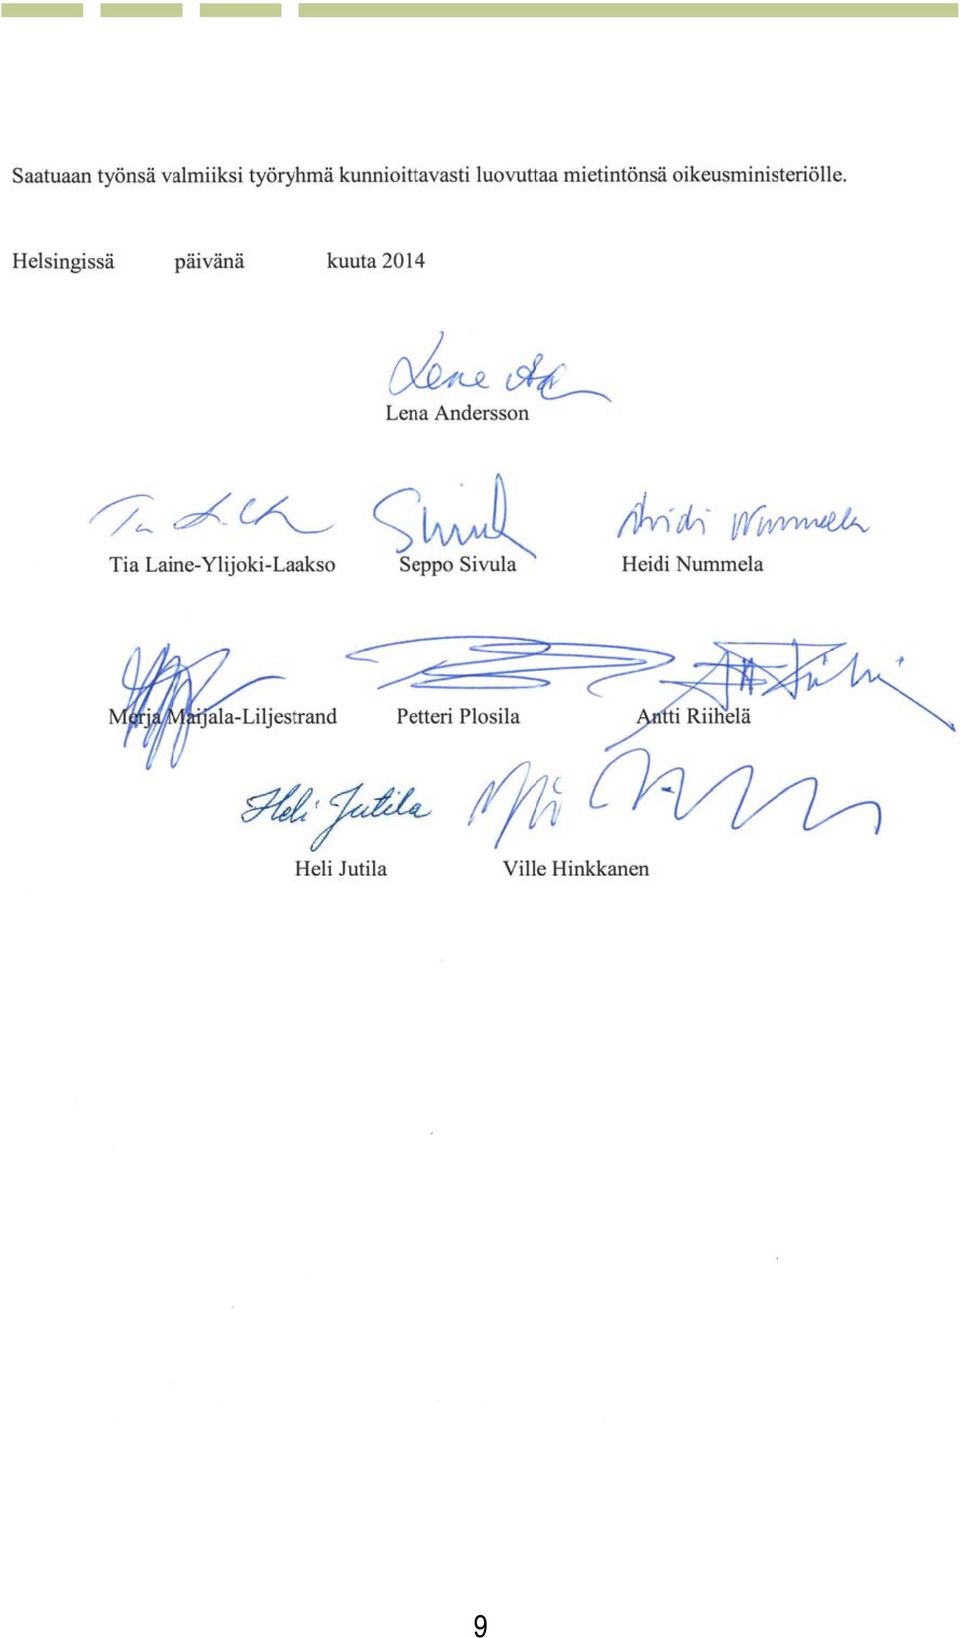 Saatuaan työnsä valmiiksi työryhmä kunnioittavasti luovuttaa mietintönsä oikeusministeriölle.
Helsingissä päivänä kuuta 2014
Lena Andersson
Tia Laine-Ylijoki-Laakso Seppo Sivula Heidi Nummela
Heidi Nummela
Merja Maijala-Liljestrand Petteri Plosila Antti Riihelä
Heli Jutila
Heli Jutila Ville Hinkkanen
9